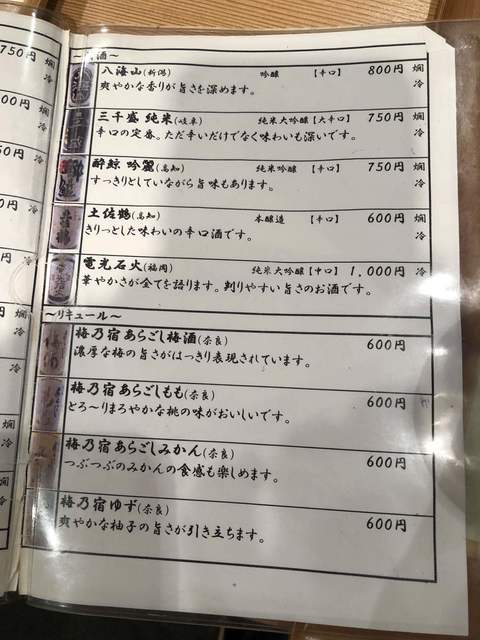 750円 燗
冷
00円
50円
0円
円
円 燗
冷
冷
燗
冷
冷
酒～
八海山(新潟) 吟醸 【辛口】 800円 燗
爽やかな香りが旨さを深めます。 冷
三千盛 純米(岐阜) 純米大吟醸【大辛口】 750円 燗
辛口の定番。ただ辛いだけでなく味わいも深いです。 冷
酔鯨 吟麗(高知) 純米吟醸 【辛口】 750円 燗
すっきりとしていながら旨味もあります。 冷
土佐鶴(高知) 本醸造 【辛口】 600円 燗
きりっとした味わいの辛口酒です。 冷
電光石火(福岡) 純米大吟醸【中口】 1,000円 冷
華やかさが全てを語ります。判りやすい旨さのお酒です。
～リキュール～
梅乃宿あらごし梅酒(奈良) 600円
濃厚な梅の旨さがはっきり表現されています。
梅乃宿あらごしもも(奈良) 600円
とろ～りまろやかな桃の味がおいしいです。
梅乃宿あらごしみかん(奈良) 600円
つぶつぶのみかんの食感も楽しめます。
梅乃宿ゆず(奈良) 600円
爽やかな柚子の旨さが引き立ちます。